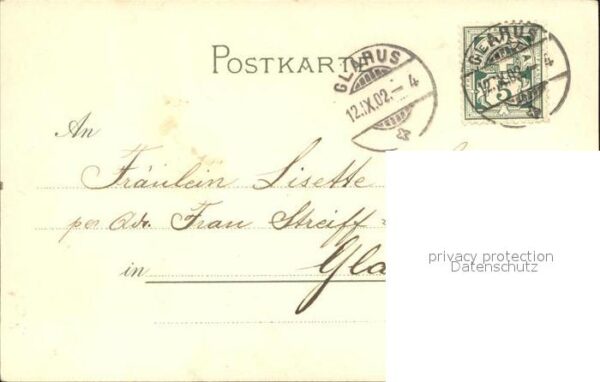 POSTKARTE
GLARUS
12.IX.02.-4
GLARUS
12.IX.02.-4
5
An
Fräulein Lisette
per Adr. Frau Streiff-
privacy protection
Datenschutz
in Gla